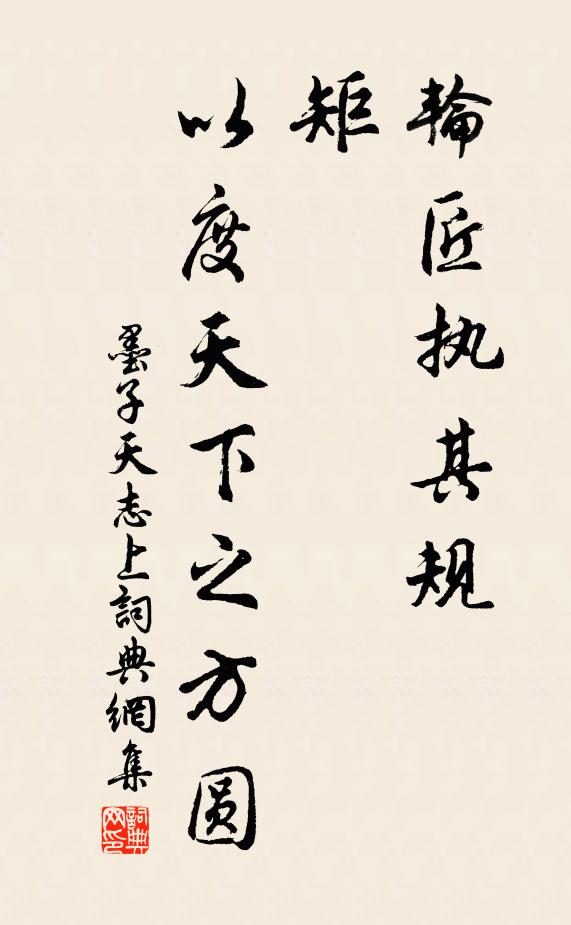 輪匠执其規
矩
以度天下之方圓
墨子天志上詞典網集
詞典网印